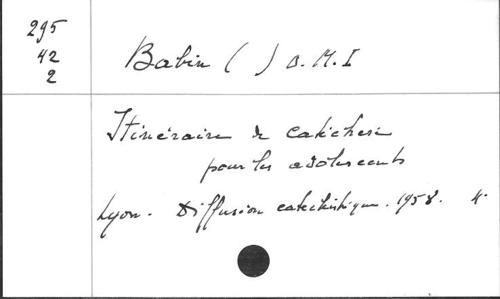 295
42
2
Babin ( ) O.M.I
Itinéraire de catéchèse
pour les adolescents
Lyon. Diffusion catéchistique. 1958. 4.